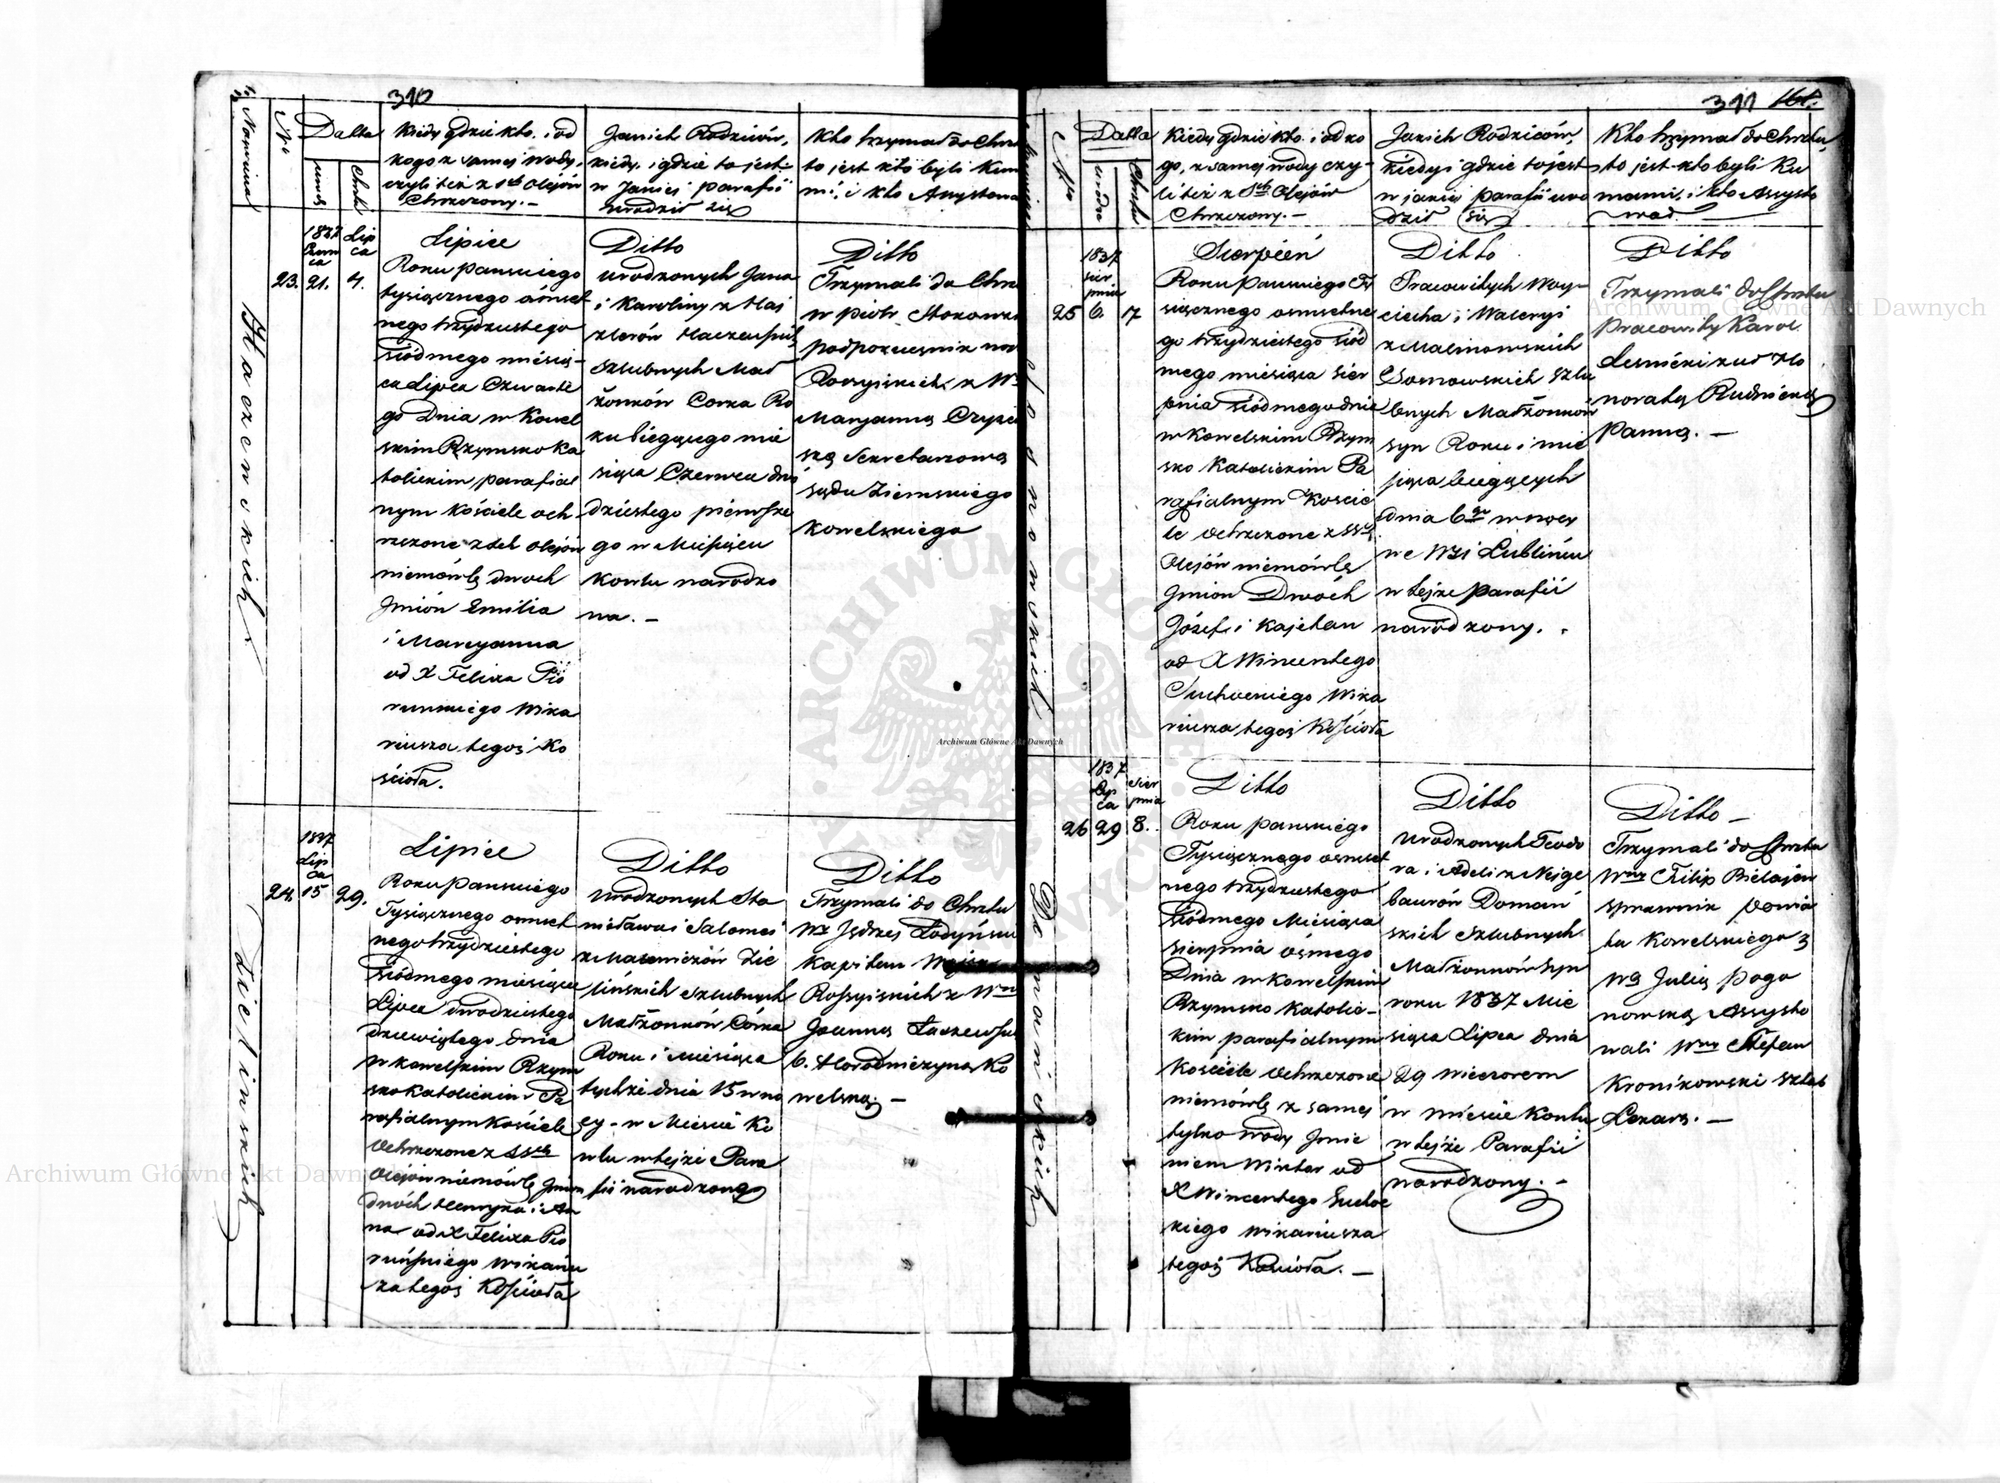 310
Nazwiska
No
Datta
urodz
Chrztu
Kiedy gdzie kto. i od
kogo z samej wody,
czyli też z Sch Olejów
Chrzczony. —
Jakich Rodziców,
kiedy, i gdzie to jest
w Jakiej parafii
urodził się
Kto trzymał do Chrz
to jest kto byli Kum
mi, i kto Assystowa
Haczewskich
1837
Czerw
ca
Lip
ca
23. 21. 4.
Lipiec
Roku pańskiego
tysiącznego ośmset
nego trzydziestego
siódmego miesią-
ca Lipca Czwarte
go Dnia w Kowel
skim Rzymsko Ka
tolickim parafial
nym Kościele och
rzczone z Sch Olejów
niemówlę dwoch
Jmión Emilia
i Maryanna
od X Felixa Pió
runskiego Wika
riusza tegoż Ko
ścioła.
Ditto
urodzonych Jana
i Karoliny z
Szlubnych Mał
żonków Corka Ro
ku biegącego mie
siąca Czerwca dwó
dziestego pierwsze
go w Miesiącu
Kowlu narodzo
na. —
Ditto
Trzymali do Chrz
w Piotr
podporucznik
Rossyiskich z W
Maryanną
ską Sekretarzową
sądu Ziemskiego
Kowelskiego
Zielinskich
1837
Lip
ca
24. 15 29.
Lipiec
Roku pańskiego
Tysiącznego ośmset
nego trzydziestego
siódmego miesiąca
Lipca dwódziestego
dziewiątego dnia
w Kowelskim Rzym
sko Katolickim Pa
rafialnym Kościele
Ochrzczone z SSch
Olejów niemówlę Jmion
dwóch Henryka i An
na od X Felixa Pio
ruńskiego Wikariu
za tegoż Kościoła
Ditto
urodzonych Sta
nisława i Salomei
z Zie
lińskich Szlubnych
Małżonków Córka
Roku i miesiąca
tychże dnia 15 w no
cy - w Miescie Ko
wlu w tejże Para
fii narodzona
Ditto
Trzymali do Chrztu
W Jędrzej
Kapitan Wojsk
Rossyiskich z W
Joanną
b. Horodniczyną Ko
welską. —
311 161.
Nazwiska
No
Datta
urodz
Chrztu
Kiedy gdzie kto. i od ko
go, z samej wody czy
li też z Sch Olejów
Chrzczony. —
Jakich Rodziców,
Kiedy i gdzie to jest
w jakiej parafii uro
dził się
Kto trzymał do Chrztu,
to jest kto byli Ku
mami, i kto Assysto
wał.
Sosnowskich
1837
sier
pnia
25 6. 7
Sierpień
Roku pańskiego Ty
siącznego ośmsetne
go trzydziestego siód
mego miesiąca sier
pnia siódmego dnia
w Kowelskim Rzym
sko Katolickim Pa
rafialnym Koscie
le ochrzczone z SSch
Olejów niemówle
Jmion Dwóch
Józef i Kajetan
od X Wincentego
Suchockiego Wika
riusza tegoż Kościoła
Ditto
Pracowitych Woy-
ciecha i Waleryi
z Malinowskich
Sosnowskich Szlu
bnych Małżonków
syn Roku i mie
siąca biegących
dnia 6go w nocy
we Wsi Lublińcu
w tejże parafii
narodzony. .
Ditto
Trzymali do Chrztu
Pracowity Karol
Lesnicki z ucz Ho
noratą Rudnicką
Panną. —
Domańskich
1837
Lip
ca
sier
pnia
26 29 8.
Ditto
Roku pańskiego
Tysiącznego ośmset
nego trzydziestego
siódmego Miesiąca
sierpnia ósmego
Dnia w Kowelskim
Rzymsko Katolic-
kim parafialnym
Kościele Ochrzczone
niemówlę z samej
tylko wody Jmie
niem Wiktor od
X Wincentego Suchoc
kiego Wikariusza
tegoż Kościoła. —
Ditto
urodzonych Teodo
ra i Adeli z Neige
baurów Domań
skich Szlubnych
Małżonków syn
roku 1837 Mie
siąca Lipca dnia
29 wieczorem
w mieście Kowlu
w tejże Parafii
narodzony. —
Ditto —
Trzymali do Chrztu
Wny Filip
sprawnik powia
tu Kowelskiego z
Wą Julią Pogo
nowską Assysto
wali Wny Stefan
Kronikowski sztab
Lekarz. —